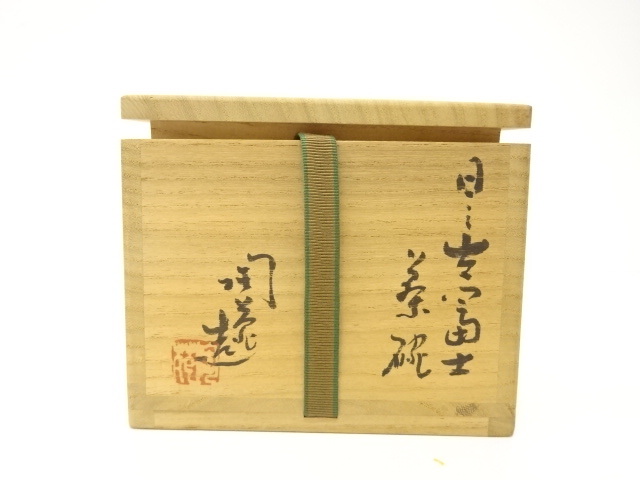 日々吉富士
茶碗
陶泰造